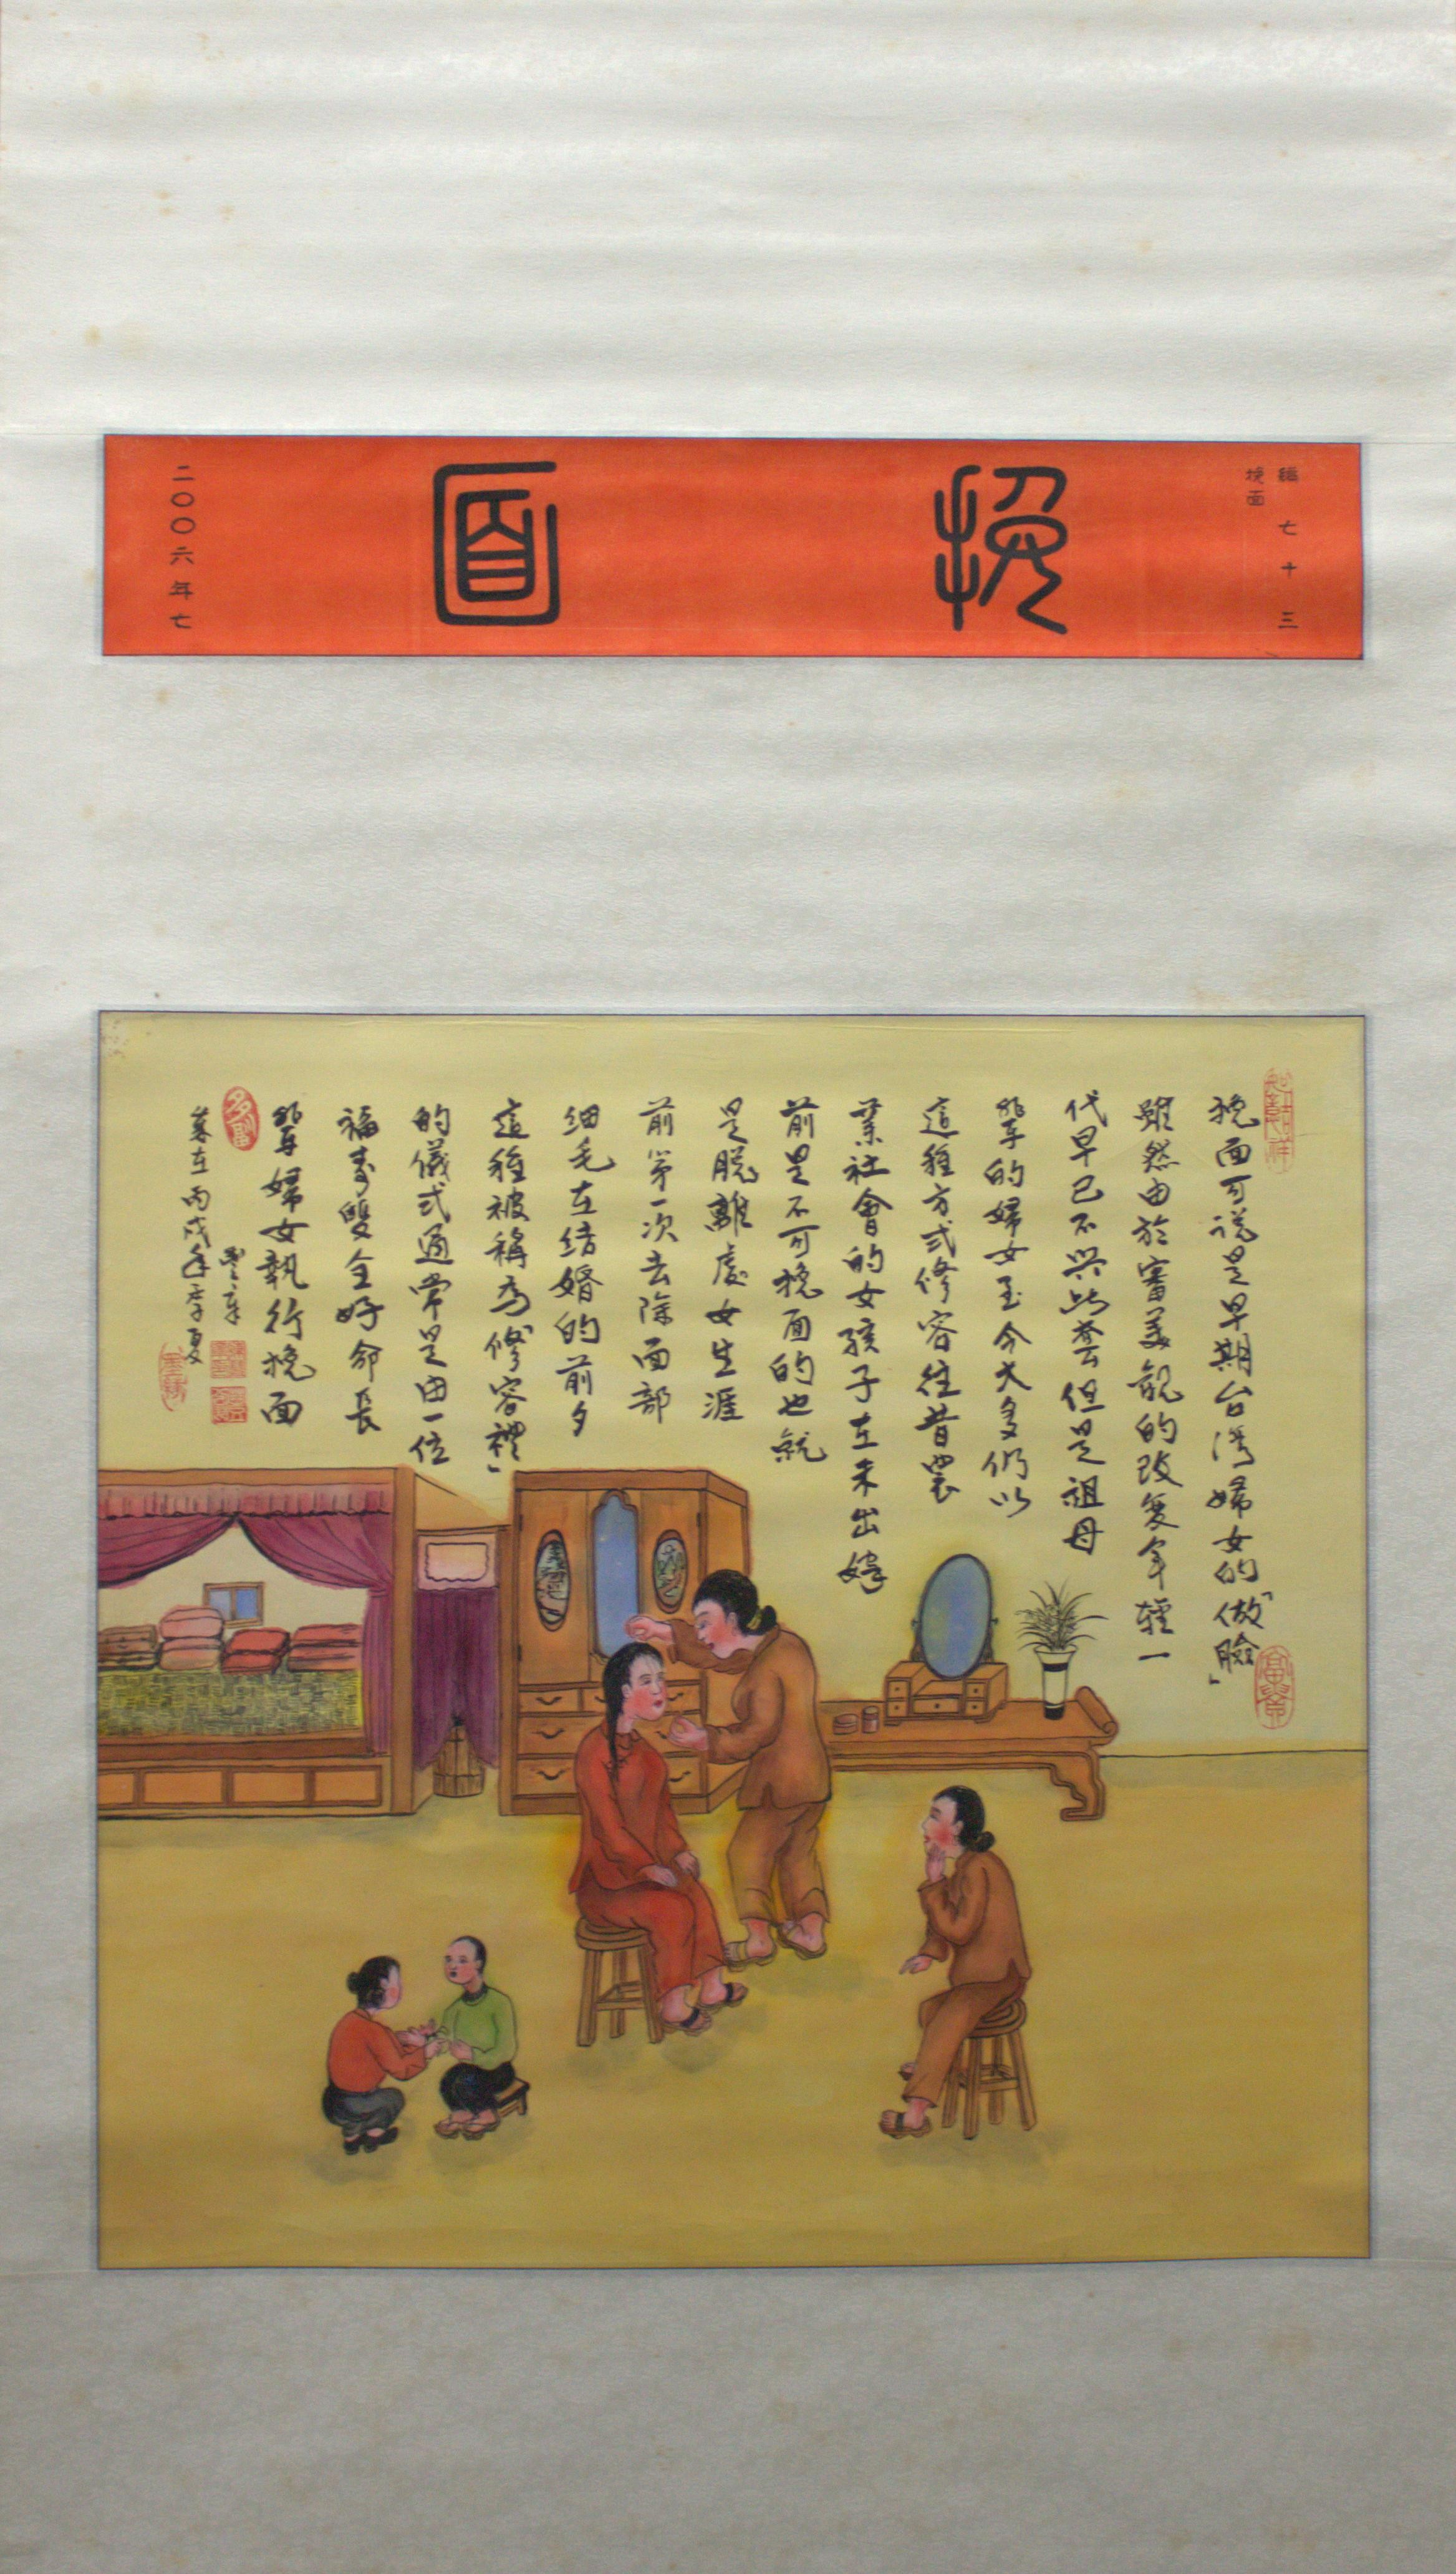 編七十三
挽面
挽面
二００六年七
挽面可說是早期台灣婦女的「做臉」
雖然由於審美觀的改變年輕一
代早已不興此套但是祖母
輩的婦女至今大多仍以
這種方式修容往昔農
業社會的女孩子在未出嫁
前是不可挽面的也就
是脫離處女生涯
前第一次去除面部
細毛在結婚的前夕
這種被稱為「修容禮」
的儀式通常是由一位
福壽雙全好命長
輩婦女執行挽面
歲在丙戌年季夏